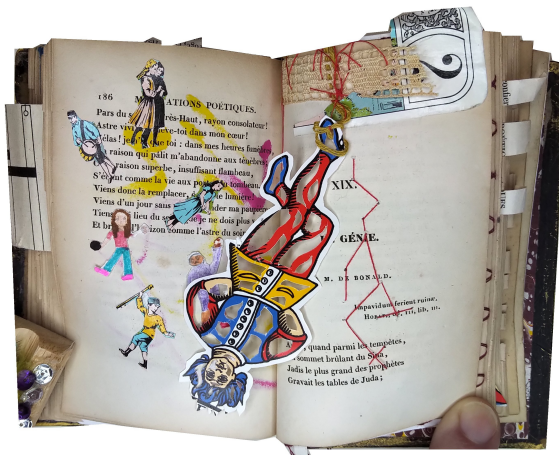 186 ATIONS POÉTIQUES.
Pars du rès-Haut, rayon consolateur!
Astre viv ève-toi dans mon cœur!
élas! je que toi: dans mes heures
raison qui pâlit m'abandonne aux ténèbres
raison superbe, insuffisant flambeau,
S'éteint comme la vie aux po tombeau
Viens donc la remplacer, lumière
Viens d'un jour sans der ma paupière
Tiens lieu du so je ne dois plus v
Et br izon comme l'astre du soir
2
XIX.
GÉNIE.
M. DE BONALD.
Impavidum ferient ruinæ,
III, lib, III.
quand parmi les tempêtes,
sommet brûlant du Sina,
Jadis le plus grand des prophètes
Gravait les tables de Juda;